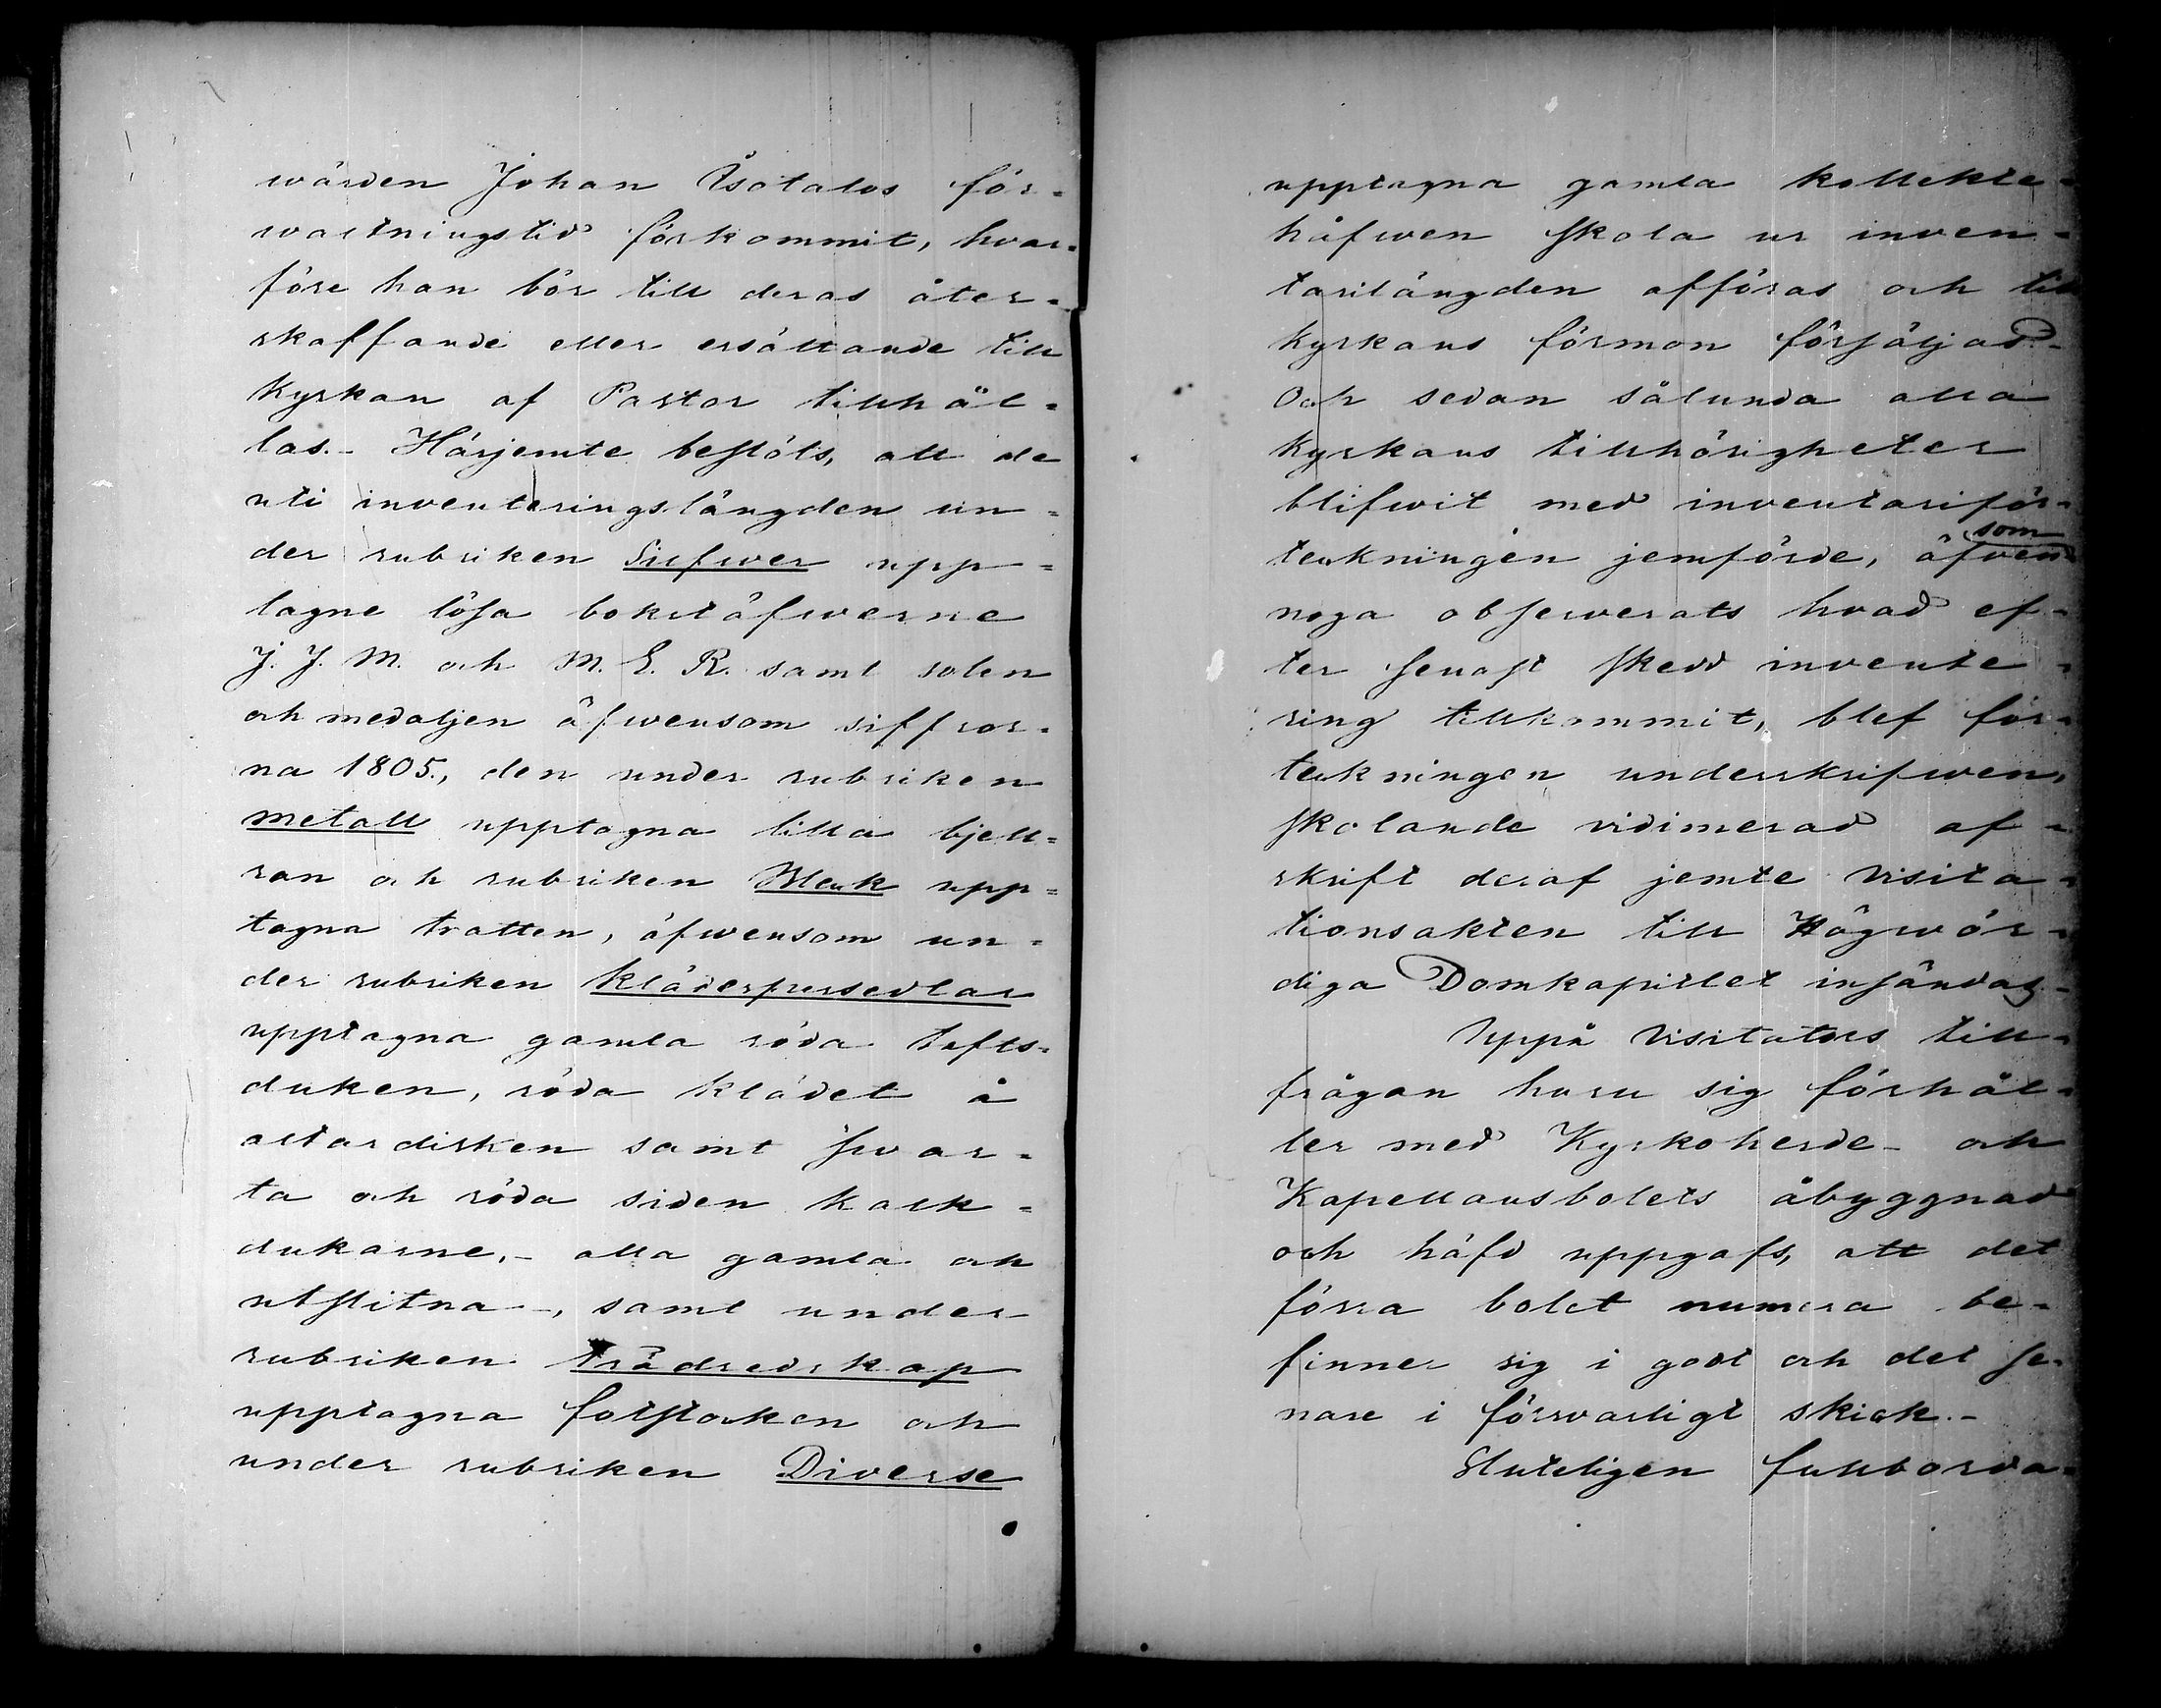 wärden Johan Isotalos för-
waltningstid förkommit, hvar-
före han bör till deras åter-
skaffande eller ersättande till
Kyrkan af Pastor tillhål-
las. - Härjemte beslöts, att de
uti inventeringslängden un-
der rubriken Silfwer upp-
tagne lösa bokstäfwerne
J. J. M. och M. E. R. samt solen
och medaljen äfwensom siffror-
na 1805., den under rubriken
metall upptagna lilla bjell-
ran och rubriken Bleck upp-
tagna tratten, äfwensom un-
der rubriken klädespersedlar
upptagna gamla röda tafts-
duken, röda klädet å
altardisken samt swar-
ta och röda siden kalk-
dukarne, - alla gamla och
utslitna -, samt under
rubriken Trädredskap
upptagna fotstocken och
under rubriken Diverse
upptagna gamla kollekte-
håfwen skola ur inven-
tarilängden afföras och till
kyrkans förmon försäljas. -
Och sedan sålunda alla
kyrkans tillhörigheter
blifwit med inventariför-
teckningen jemförde, äfven som
noga observerats hvad ef-
ter senast skedd invente-
ring tillkommit, blef för-
teckningen underskrifwen,
skolande vidimerad af-
skrift deraf jemte visita-
tionsakten till Högwör-
diga Domkapitlet insändas. -
Uppå Visitators till-
frågan huru sig förhål-
ler med Kyrkoherde- och
Kapellansbolets åbyggnad
och häfd uppgafs, att det
förra bolet numera be-
finner sig i godt och det se-
nare i försvarligt skick. -
Slutligen fullborda-